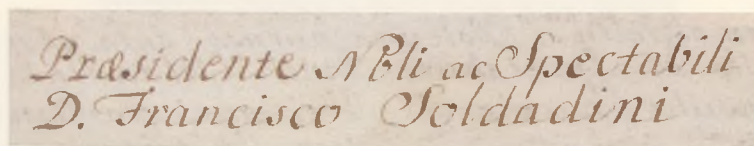 Præsidente Nbli ac Spectabili
D. Francisco Soldadini